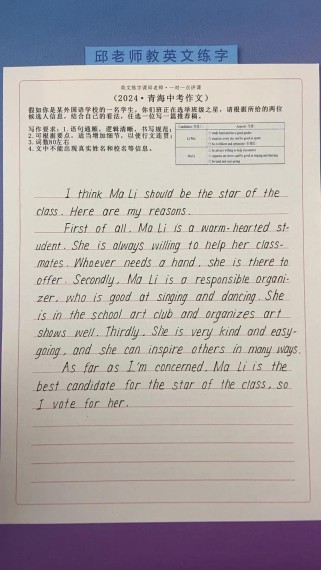 邱老师教英文练字
英文练字课邱老师·一对一点评课
(2024·青海中考作文)
假如你是某外国语学校的一名学生，你们班正在选举班级之星，请根据所给的两位
候选人信息，结合自己的看法，任选一位写一篇推荐稿。
写作要求：1.语句通顺，逻辑清晰，书写规范；
2.可根据要点，适当增加细节，以使行文连贯；
3.词数80左右
4.文中不能出现真实姓名和校名等信息。
I think Ma Li should be the star of the
class. Here are my reasons.
First of all, Ma Li is a warm-hearted st-
udent. She is always willing to help her class-
mates. Whoever needs a hand, she is there to
offer. Secondly, Ma Li is a responsible organi-
zer, who is good at singing and dancing. She
is in the school art club and organizes art
shows well. Thirdly, She is very kind and easy-
going, and she can inspire others in many ways.
As far as I'm concerned, Ma Li is the
best candidate for the star of the class, so
I vote for her.